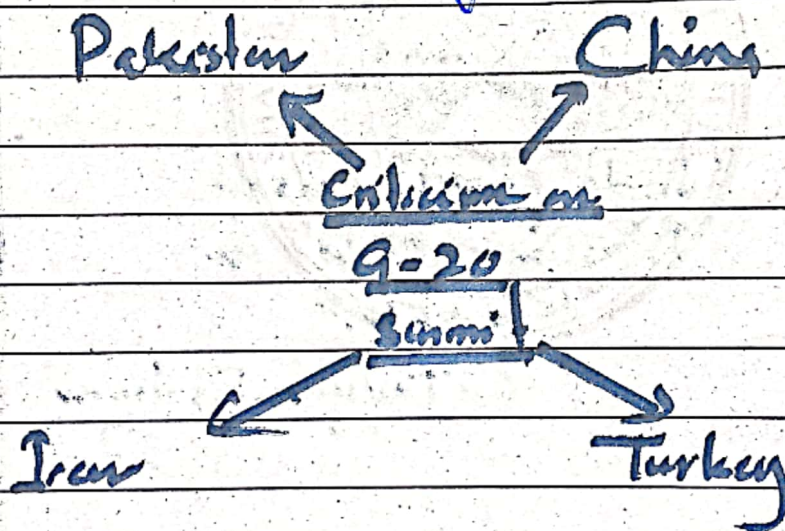 Pakistan China
Criticism on
G-20
Summit
Iran Turkey